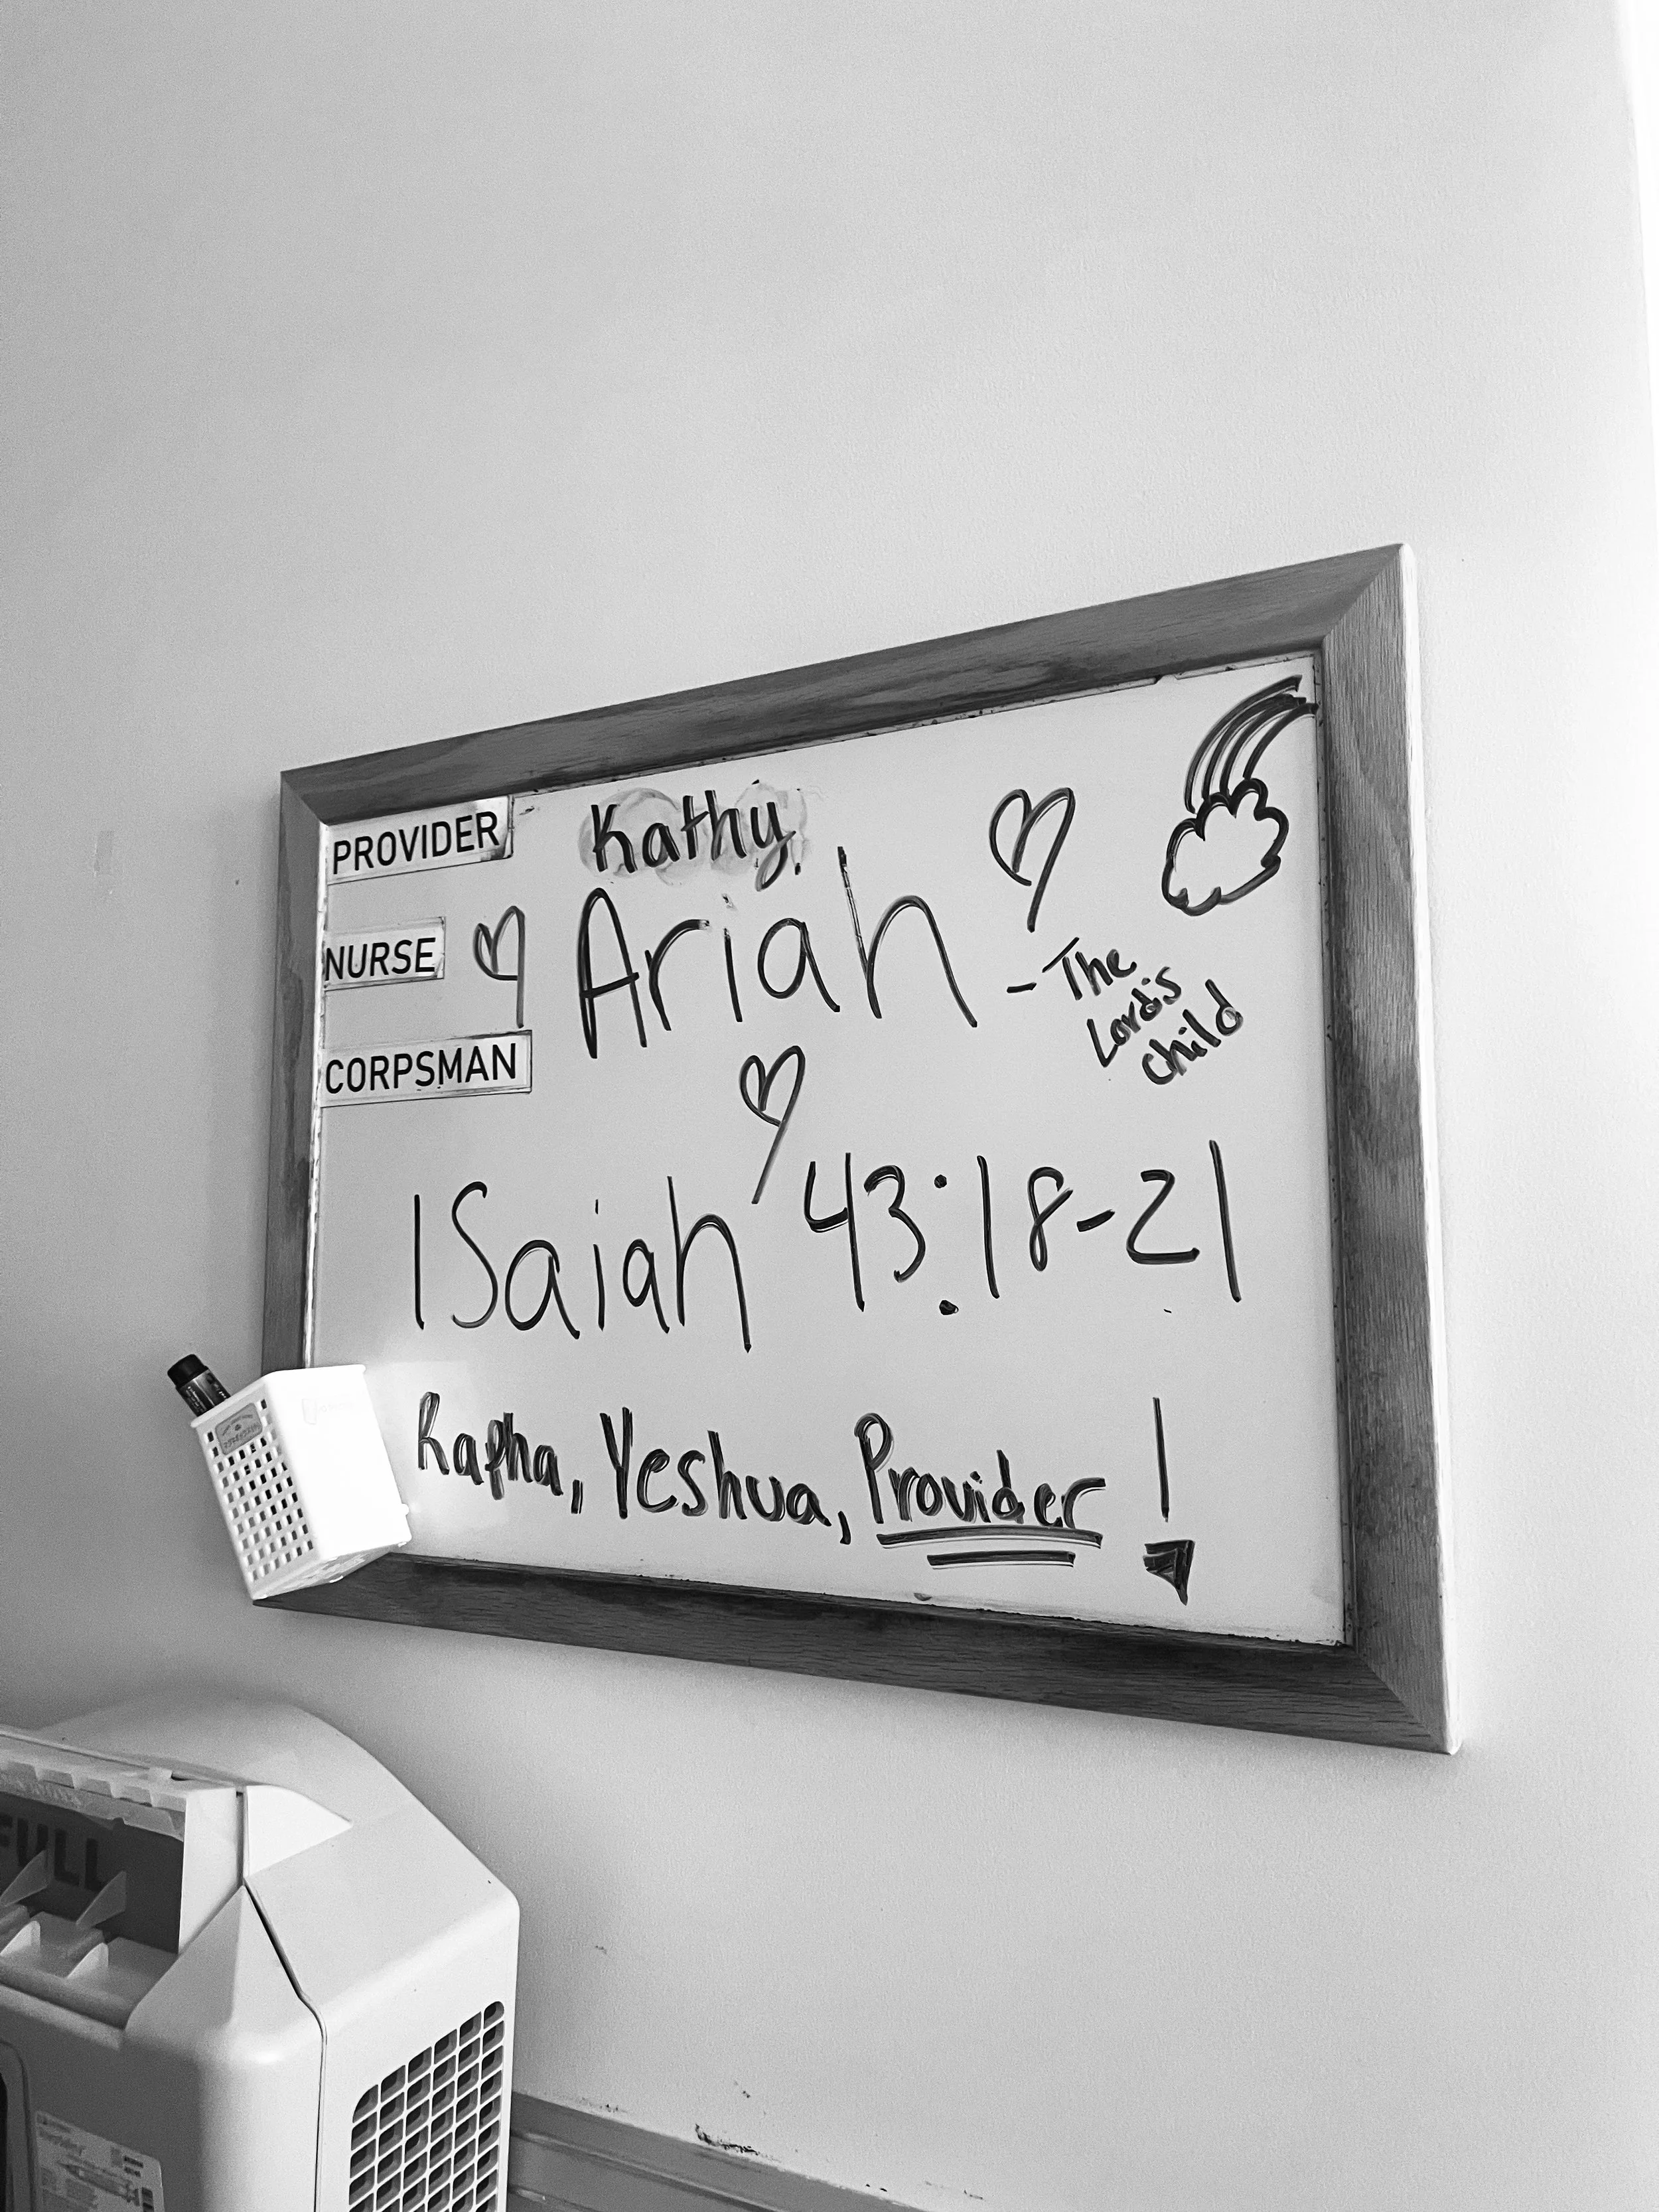 PROVIDER Kathy,
NURSE Ariah - The Lord's child
CORPSMAN
Isaiah 43:18-21
Rapha, Yeshua, Provider!
FULL